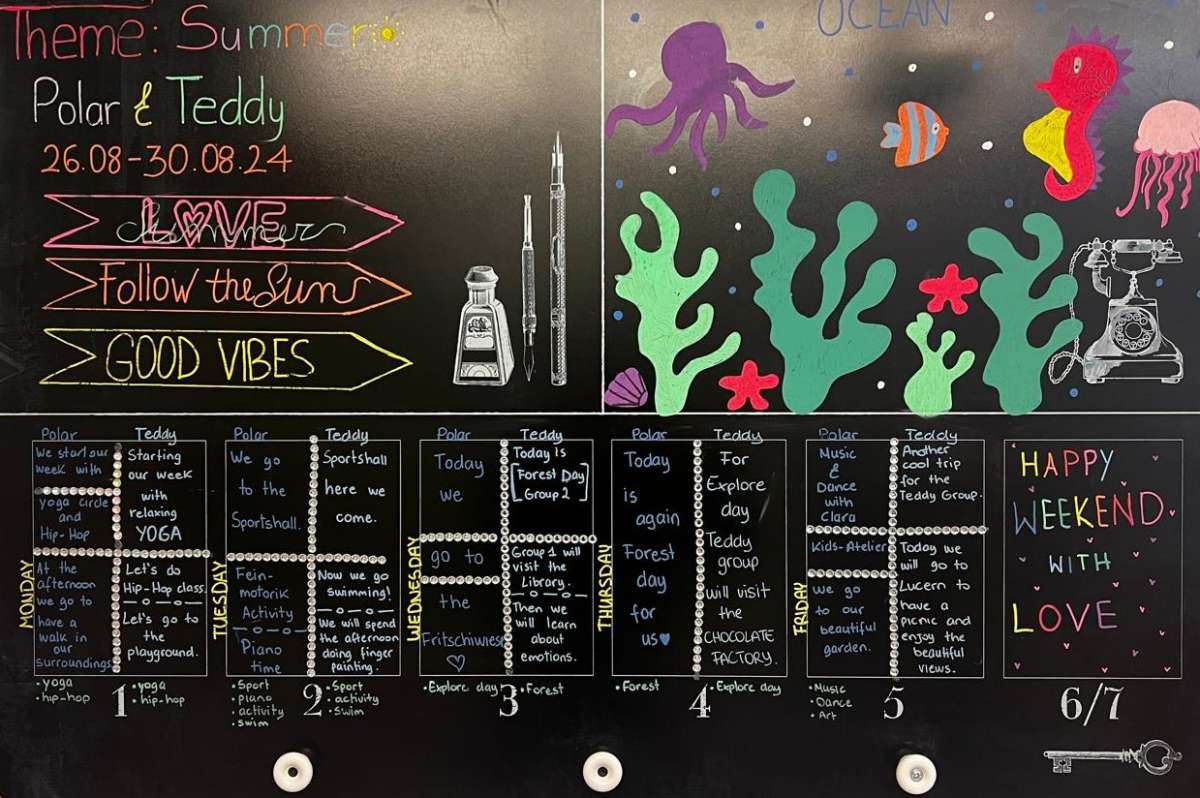 Theme: Summer
Polar & Teddy
26.08-30.08.24
LOVE
Summer
Follow the Sun
GOOD VIBES
OCEAN
MONDAY
Polar
We start our
week with
yoga circle
and
Hip-Hop
At the
afternoon
we go to
have a
walk in
our
surroundings
• yoga
• hip-hop
Teddy
Starting
our week
with
relaxing
YOGA
Let's do
Hip-Hop class.
Let's go to
the
playground.
• yoga
• hip-hop
1
TUESDAY
Polar
We go
to the
Sportshall.
Fein-
motorik
Activity
Piano
time
• Sport
• piano
• activity
• swim
Teddy
Sportshall
here we
come.
Now we go
swimming!
We will spend
the afternoon
doing finger
painting.
• Sport
• activity
• swim
2
WEDNESDAY
Polar
Today
we
go to
the
Fritschiwiese
• Explore day
Teddy
Today is
[Forest Day
Group 2]
Group 1 will
visit the
Library.
Then we
will learn
about
emotions.
• Forest
3
THURSDAY
Polar
Today
is
again
Forest
day
for
us
• Forest
Teddy
For
Explore
day
Teddy
group
will visit
the
CHOCOLATE
FACTORY.
• Explore day
4
FRIDAY
Polar
Music
&
Dance
with
Clara
Kids-Atelier
We go
to our
beautiful
garden.
• Music
• Dance
• Art
Teddy
Another
cool trip
for the
Teddy Group.
Today we
will go to
Lucern to
have a
picnic and
enjoy the
beautiful
views.
5
HAPPY
WEEKEND
WITH
LOVE
6/7